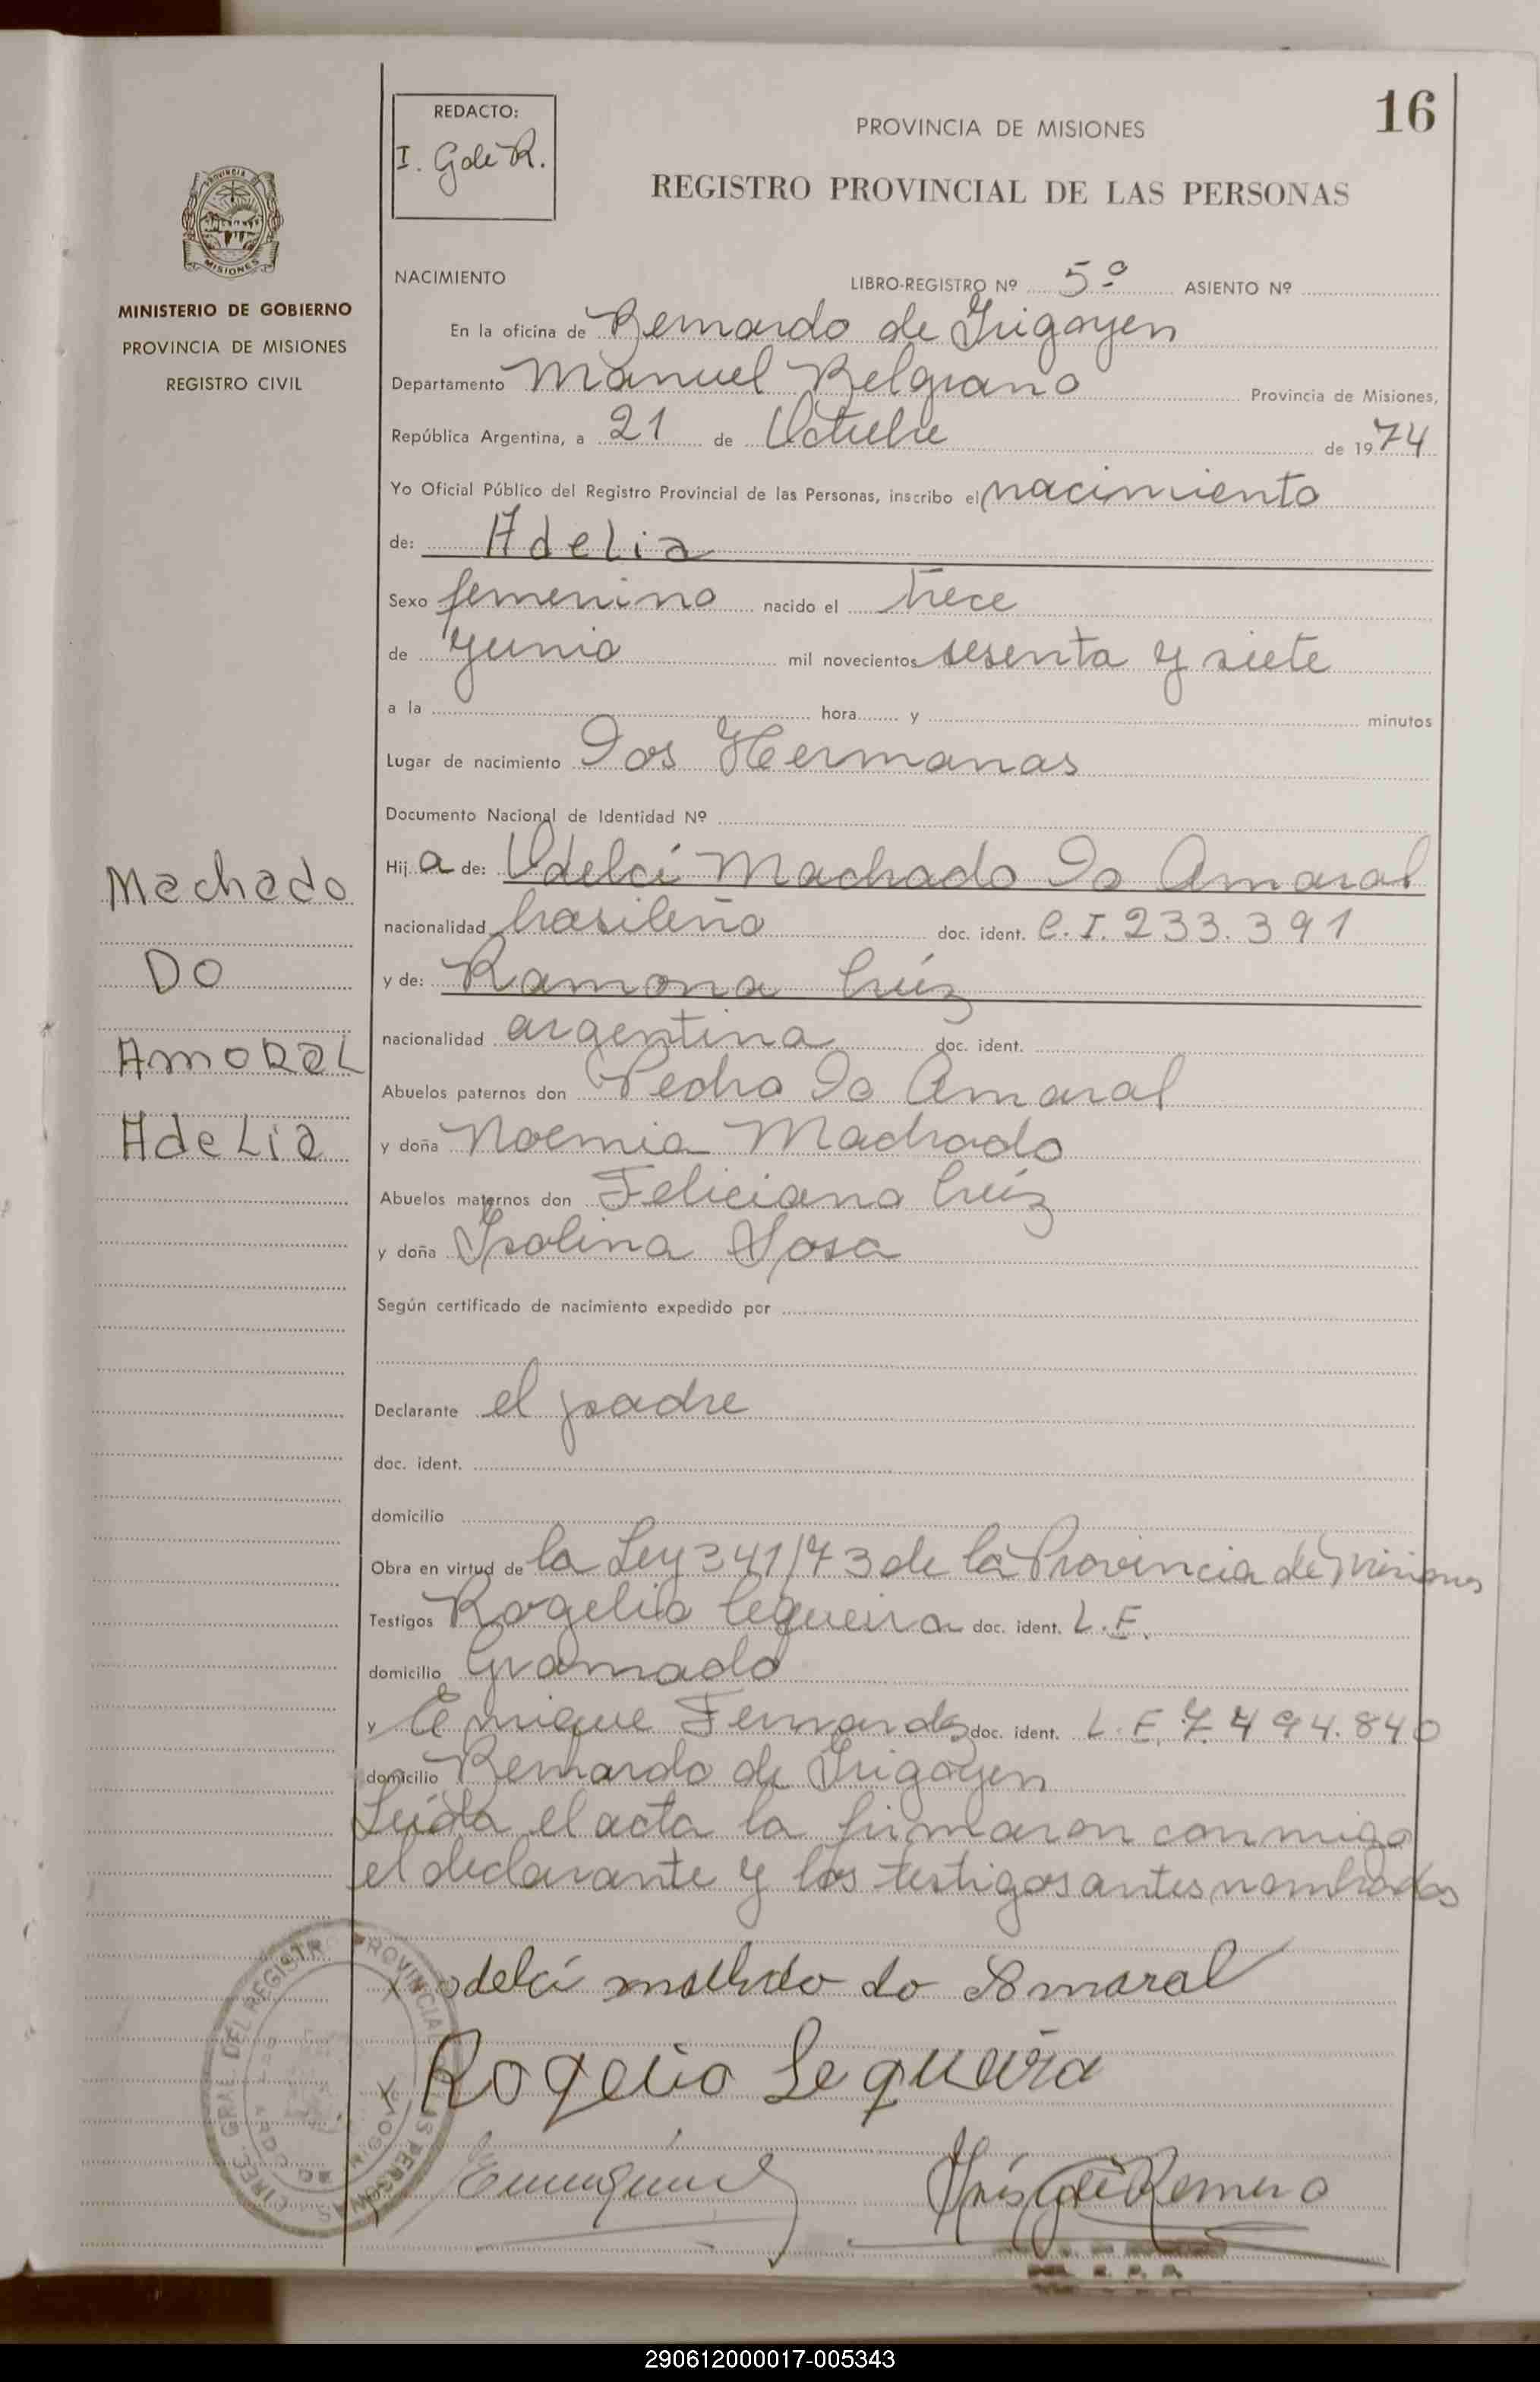 16
REDACTO:
I. G de R.
PROVINCIA DE MISIONES
REGISTRO PROVINCIAL DE LAS PERSONAS
PROVINCIA DE
MISIONES
MINISTERIO DE GOBIERNO
PROVINCIA DE MISIONES
REGISTRO CIVIL
NACIMIENTO LIBRO-REGISTRO Nº 5º ASIENTO Nº
En la oficina de Bernardo de Irigoyen
Departamento Manuel Belgrano Provincia de Misiones,
República Argentina, a 21 de Octubre de 1974
Yo Oficial Público del Registro Provincial de las Personas, inscribo el nacimiento
de: Adelia
Sexo femenino nacido el trece
de Yunio mil novecientos sesenta y siete
a la hora y minutos
Lugar de nacimiento Dos Hermanas
Documento Nacional de Identidad Nº
Hija de: Odelci Machado Do Amaral
nacionalidad brasileña doc. ident. C.I. 233.391
y de: Ramona Cruz
nacionalidad argentina doc. ident.
Abuelos paternos don Pedro Do Amaral
y doña Noemia Machado
Abuelos maternos don Feliciano Cruz
y doña Isolina Sosa
Según certificado de nacimiento expedido por
Declarante el padre
doc. ident.
domicilio
Obra en virtud de la Ley 341/73 de la Provincia de Misiones
Testigos Rogelio Cequeira doc. ident. L.E.
domicilio Gramado
y Enrique Fernandes doc. ident. L.E. 7.494.840
domicilio Bernardo de Irigoyen
Leída el acta la firmaron conmigo
el declarante y los testigos antes nombrados
Machado
Do
Amoral
Adelia
odelci do Amaral
Rogelio Sequeira
Inés G de Romero
DIREC. GRAL. DEL REGISTRO PROVINCIAL DE LAS PERSONAS
290612000017-005343